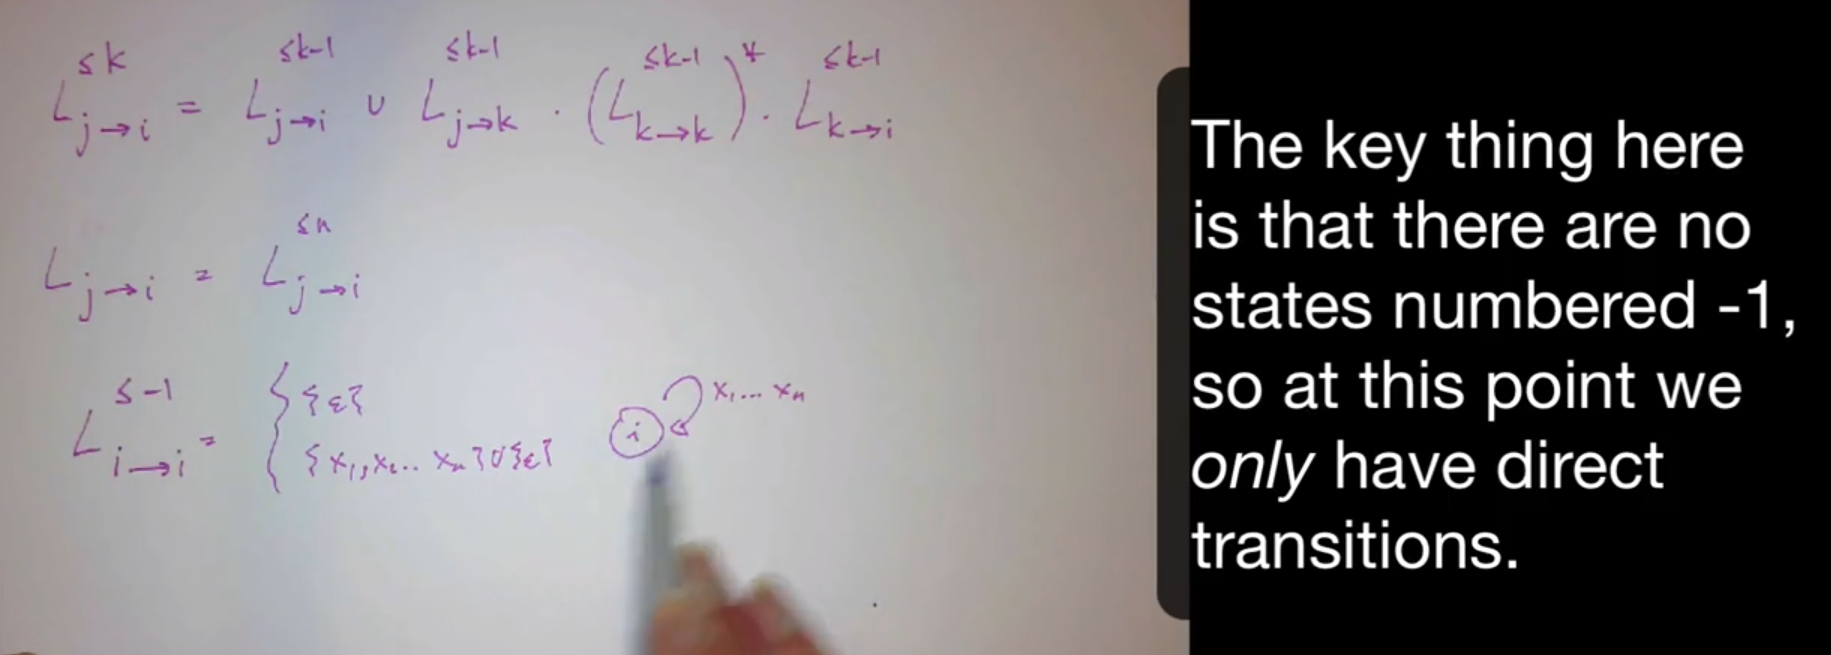 L^{≤k}_{j→i} = L^{≤k-1}_{j→i} ∪ L^{≤k-1}_{j→k} · (L^{≤k-1}_{k→k})^* · L^{≤k-1}_{k→i}
L_{j→i} = L^{≤n}_{j→i}
L^{≤-1}_{i→i} = { {ε}
{x₁, x₂.. xₙ} ∪ {ε}
i x₁... xₙ
The key thing here
is that there are no
states numbered -1,
so at this point we
only have direct
transitions.